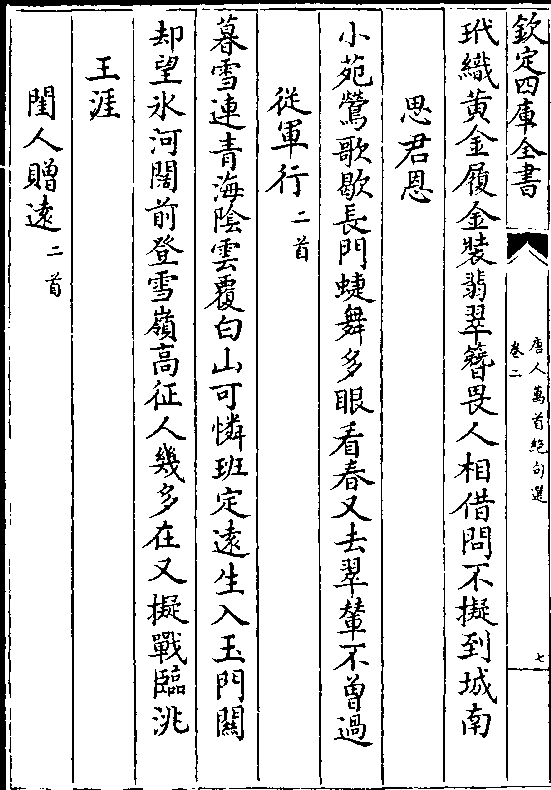 欽定四庫全書
唐人萬首絶句選
卷二
七
玳織黄金履金裝翡翠簪畏人相借問不擬到城南
思君恩
小苑鶯歌歇長門蜨舞多眼看春又去翠輦不曽過
從軍行二首
暮雪連青海陰雲覆白山可憐班定遠生入玉門關
却望氷河闊前登雪嶺高征人幾多在又擬戰臨洮
王涯
閨人贈逺二首